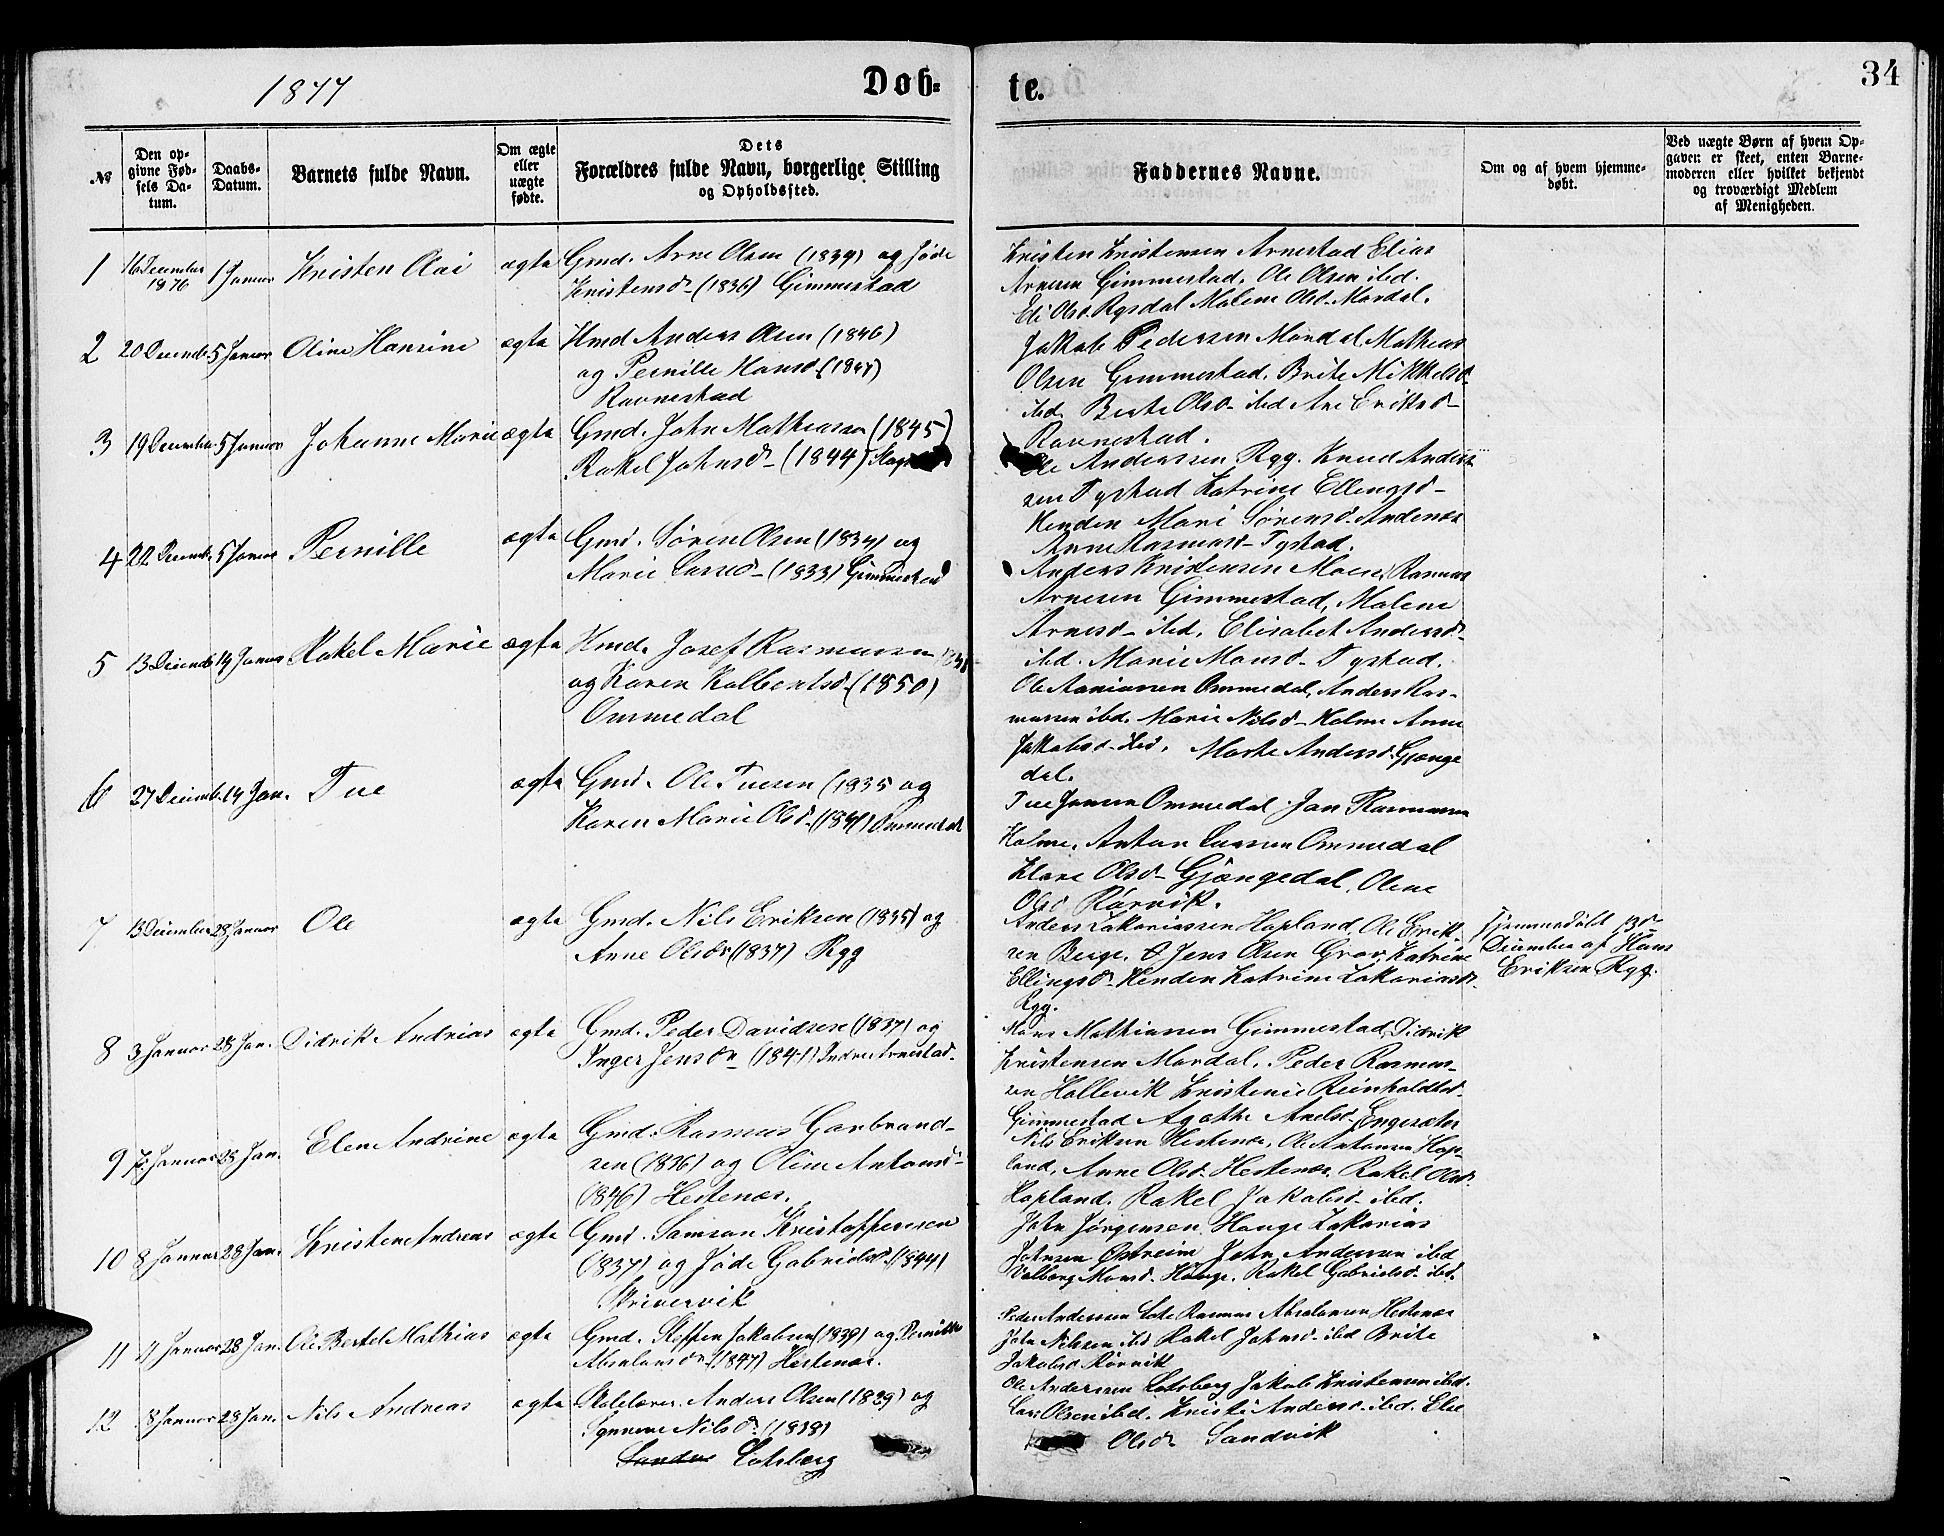 1877
Døb-
te.
34
No
Den op-
givne Fød-
sels Da-
tum.
Daabs-
Datum.
Barnets fulde Navn.
Om ægte
eller
uægte
fødte.
Dets
Forældres fulde Navn, borgerlige Stilling
og Opholdssted.
Faddernes Navne.
Om og af hvem hjemme-
døbt.
Ved uægte Børn af hvem Op-
gaven er skeet, enten Barne-
moderen eller hvilket bekjendt
og troværdigt Medlem
af Menigheden.
1 16 December 1876 1 Januar Kristen Elai ægte Gmd. Arne Olsen (1839) og Jøde
Kristensd- (1836) Gimmestad
Kristen Kristensen Arnestad Elias
Arnesen Gimmestad. Ole Olsen ibd.
Eli Olsd. Rysdal Malene Olsd. Mardal.
2 20 Decemb 5 Januar Oline Hansine ægte Hmd Anders Olsen (1846)
og Pernille Hansd- (1847)
Ravnestad
Jakob Pedersen Mardal Mathias
Olsen Gimmestad. Brite Mikkelsd-
ibd. Berte Olsd- ibd Ane Eriksd-
Ravnestad.
3 19 December 5 Januar Johanne Marie ægte Gmd. John Mathiassen (1845)
Rakel Johnsd- (1844)
Ole Anderssen Ryg. Knud Anders-
sen Tystad Katrine Ellingsd-
Henden Mari Sørensd. Andenes
Anne Rasmusd- Tystad.
4 22 Decemb. 5 Januar Pernille ægte Gmd. Søren Olsen (1834) og
Marie Larsd- (1833) Gimmestad
Anders Kristensen Moen, Rasmus
Arnesen Gimmestad, Malene
Arnesd- ibd. Elisabet Andersd-
ibd. Marie Monsd- Tystad.
5 13 Decemb 14 Januar Rakel Marie ægte Hmd. Josef Rasmussen
og Karen Kolbentsd- (1850)
Ommedal
Ole Ommedal, Anders Ras-
mussen ibd. Marie Nilsd- Holme Anne
Jakobsd- ibd. Marte Andersd. Gjenge
dal.
6 27 Decemb. 14 Jan. Tue ægte Gmd. Ole Tuesen (1835 og
Karen Marie Olsd. (1841) Ommedal
Tue Jansen Ommedal Jan Rasmussen
Holme. Anton Larsen Ommedal
Klara Olsd- Gjængedal, Olene
Olsd Rørvik.
7 13 December 28 Januar Ole ægte Gmd. Nils Eriksen (1835) og
Anne Olsdr (1837) Ryg
Anders Zakariassen Hopland, Ole Erik-
sen Berge. Jens Olsen Grov, Katrine
Ellingsd- Henden Katrine Zakariasd.
Ryg.
Hjemmedøbt 13de
December af Hans
Eriksen Ryg.
8 3 Januar 28 Jan. Didrik Andrias ægte Gmd. Peder Davidsen (1837) og
Inger Jensdr (1841) Indre Arnestad.
Mons Mathiassen Gimmestad, Didrik
Kristensen Mardal. Peder Rasmus-
sen Hollevik Kristense Reinholdtsd-
Gimmestad Agathe Engesæter
9 7 Januar 28 Jan. Elen Andrine ægte Gmd. Rasmus Garbrand-
sen (1836) og Oline Antonsd-
(1846) Hestenæs.
Nils Eriksen Hestenæs, Ole Antonsen Hop-
land, Anne Olsd. Hestenæs. Rakel Olsd.
Hopland. Rakel Jakobsd- ibd.
10 8 Januar 28 Jan. Kristen Andreas ægte Gmd. Samson Kristoffersen
(1837) og Jøde Gabrielsd. (1844)
Skrivervik
John Jørgensen Hauge Zakarias
Johnsen Østreim John Andersen ibd
Valborg Monsd. Hauge. Rakel Gabrielsd. ibd.
11 11 Januar 28 Jan. Ole Bertel Mathias ægte Gmd. Steffen Jakobsen (1839) og Pernille
Absalonsdr (1847) Hestenæs.
Peder Anderssen Lote Rasmus Absalonsen Hestenæs
John Nilssen ibd Rakel Johnsd. ibd Brite
Jakobsd Rørvik
12 8 Januar 28 Jan. Nils Andreas ægte Skolelærer Anders Olsen (1839) og
Synneve Nilsd. (1838)
Lotsberg
Ole Anderssen Lotsberg Jakob Kristensen ibd.
Lars Olsen ibd. Kristi Andersd. ibd. Else
Olsdr Sandvik